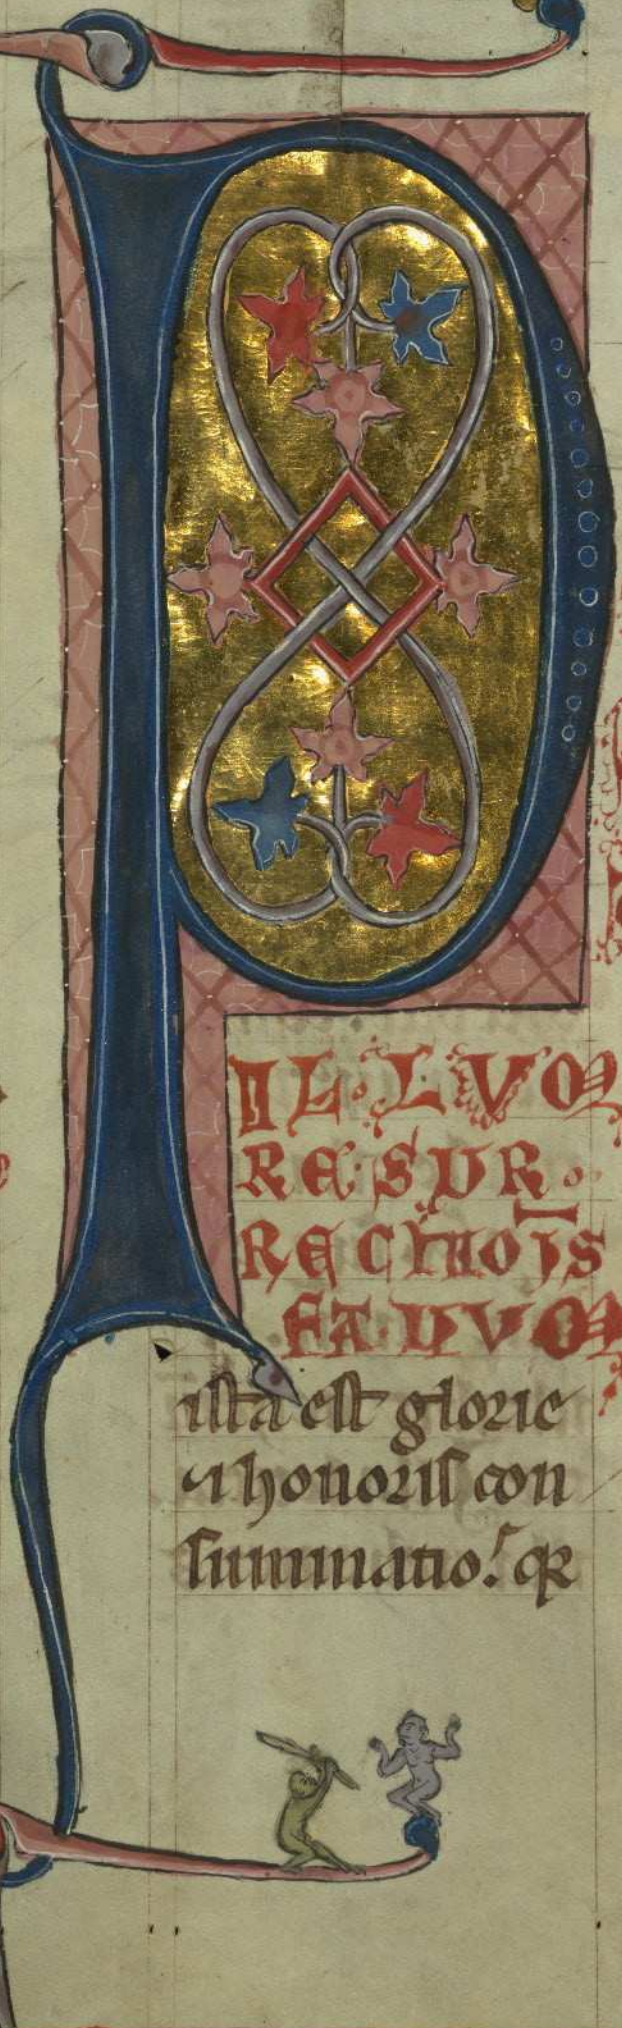 P
IL·LVM
RE·SUR·
RECTIOĪS
ista est glorie
⁊ honoris con
summatio. qr